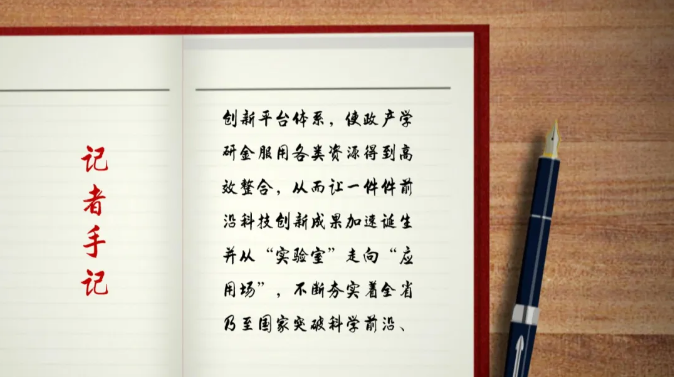 记者手记
创新平台体系，使政产学
研金服用各类资源得到高
效整合，从而让一件件前
沿科技创新成果加速诞生
并从“实验室”走向“应
用场”，不断夯实着全省
乃至国家突破科学前沿、